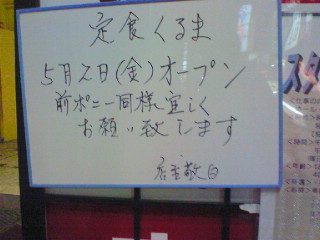 定食くるま
5月2日(金)オープン
前ポニー同様に宜しく
お願い致します
店主敬白